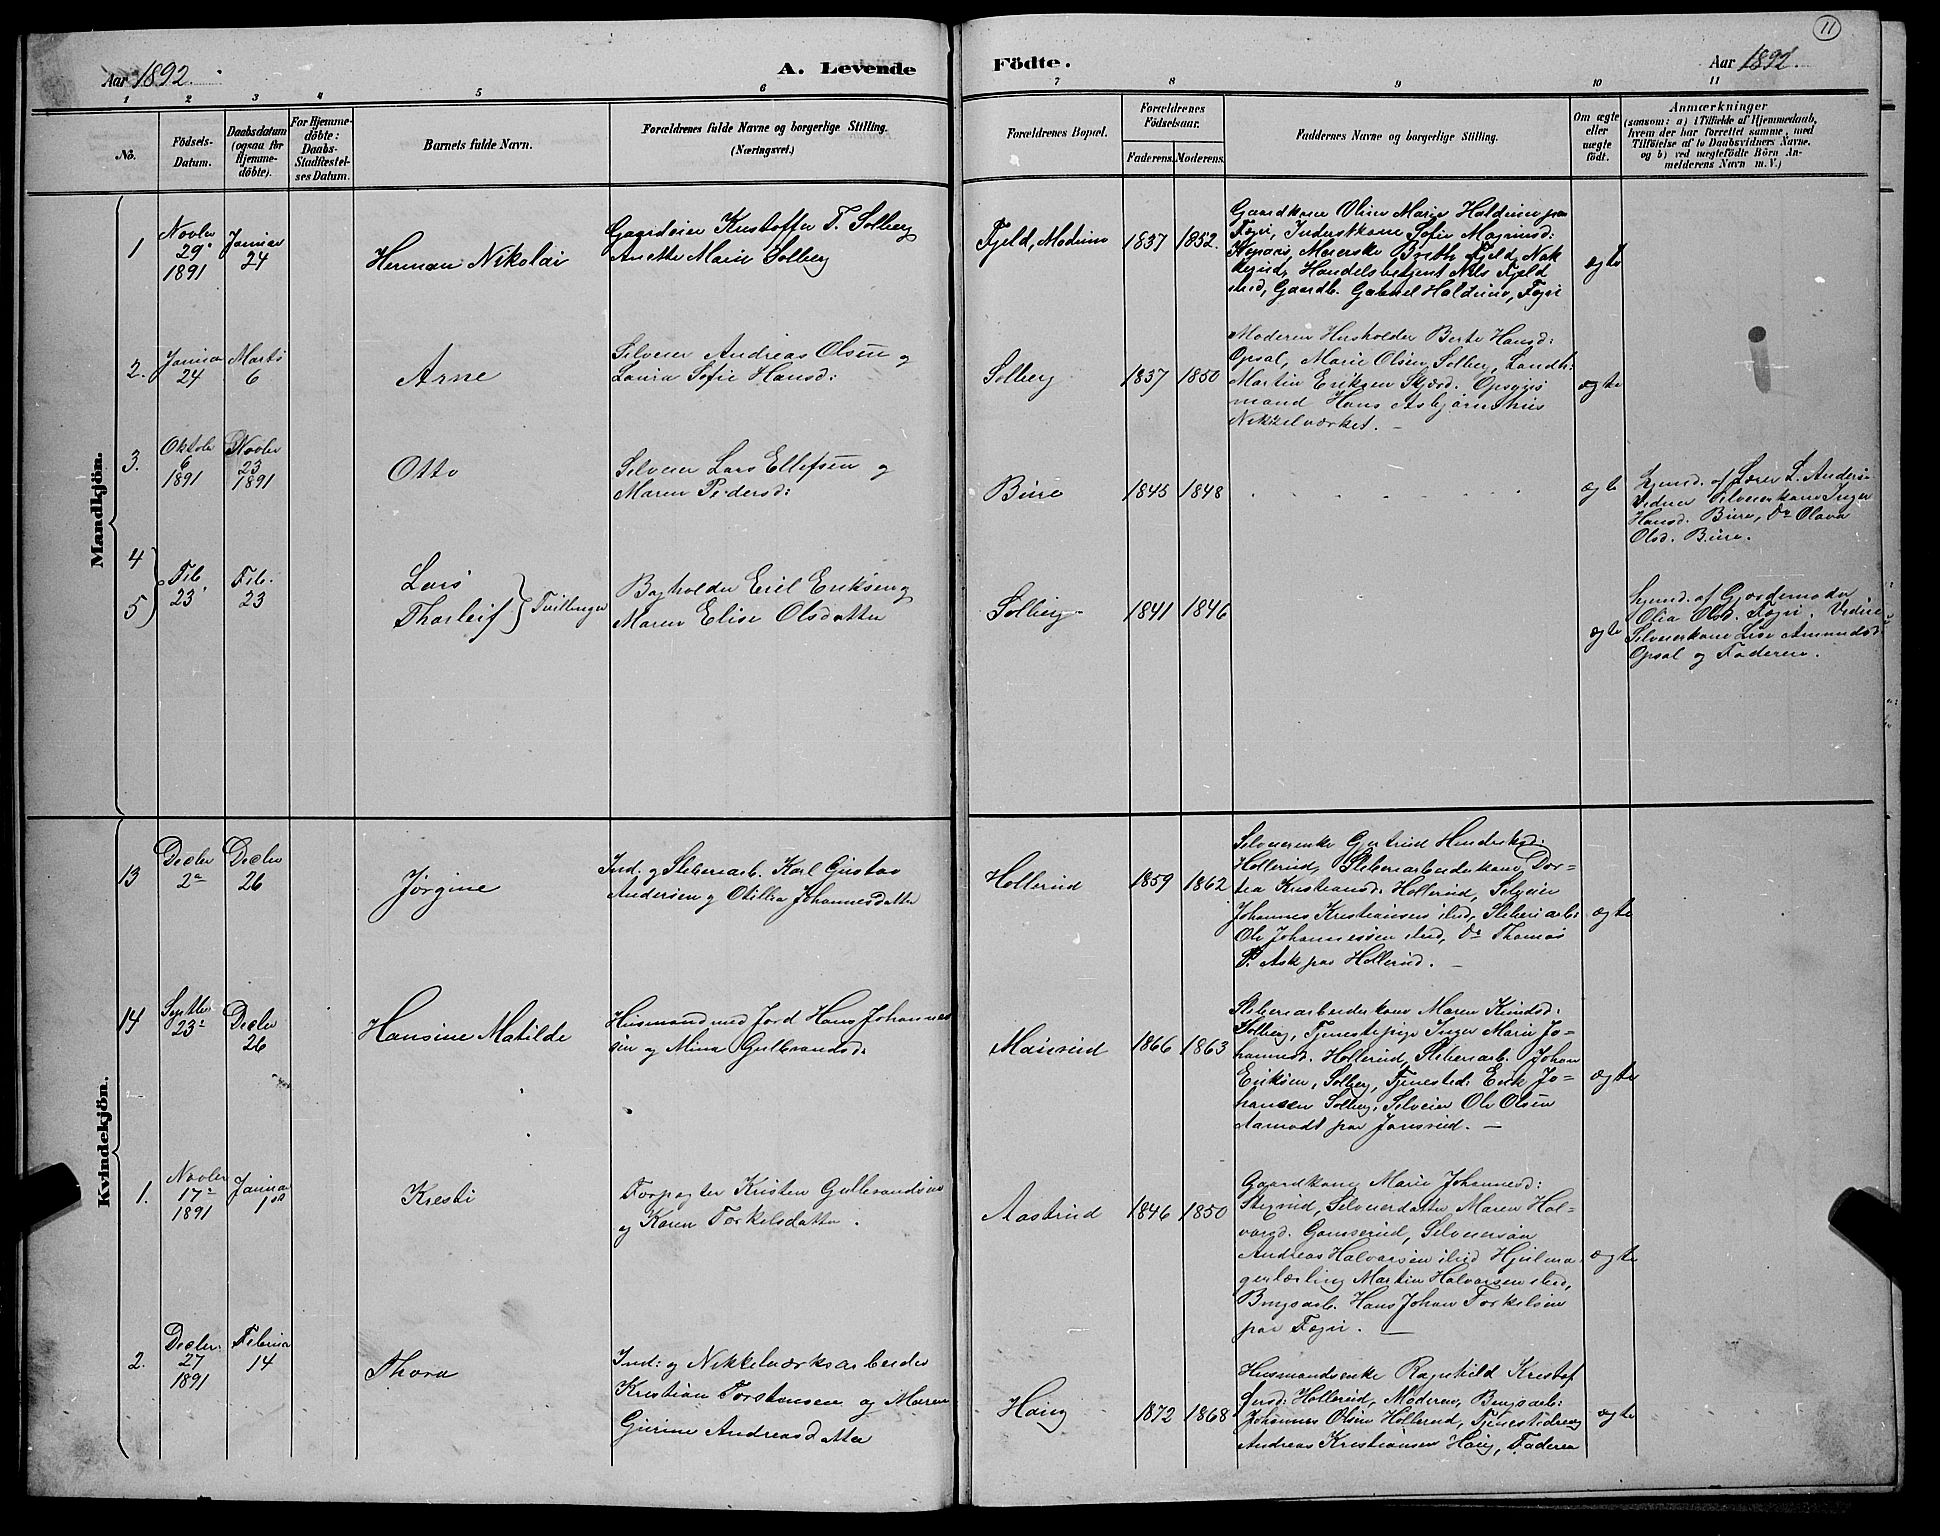 11
Aar 1892.
A. Levende
Födte.
Aar 1892.
1 2 3 4 5 6 7 8 9 10 11
No.
Födsels-
Datum.
Daabsdatum
(ogsaa for
Hjemme-
döbte).
For Hjemme-
döbte:
Daabs-
Stadfæstel-
ses Datum.
Barnets fulde Navn.
Forældrenes fulde Navne og borgerlige Stilling.
(Næringsvei.)
Forældrenes Bopæl.
Forældrenes
Födselsaar.
Faderens. Moderens.
Faddernes Navne og borgerlige Stilling.
Om ægte
eller
uægte
födt.
Anmærkninger
(saasom: a) i Tilfælde af Hjemmedaab,
hvem der har forrettet samme, med
Tilföielse af to Daabsvidners Navne,
og b) ved uægtefödte Börn An-
melderens Navn m.V.)
Mandkjön.
1
Novbr
29
1891
Januar
24
Herman Nikolai
Gaardeier Kristoffer T. Solberg
Anette Marie Solberg
Fjeld, Modum
1837 1852
Gaardkone Oline Marie Haldrine paa
Fogn, Inderstkone Sofie Magnusd:
Meierske Berthe Fjeld, Nak
kerud, Handelsbetjent Nils Fjeld
sted, Gaardb. Gabriel
ægte
2.
Januar
24
Marts
6
Arne
Selveier Andreas Olsen og
Laura Sofie Hansd:
Solberg
1837 1850
Moderen Husholder Berte Hansd:
Opsal, Marie Olsen Solberg, Landh:
Martin Eriksen Skjærd. Opsyns
mand Hans Asbjørnshus
Nikkelværket. –
ægte
3.
Oktobr
6
1891
Novbr
23
1891
Otto
Selveier Lars Ellefsen og
Maren Pedersd:
Bure
1845 1848
ægte
Hjemd. af Lærer L. Anders:
Vidner Selveierkone Inger
Hansd. Bure, Do Olava
Olsd. Bure.
4
5
Feb
23
Feb.
23
Lars
Thorleif } Tvillinger
Bygholder Eril Eriksen og
Maren Elise Olsdatter
Solberg
1841 1846
ægte
Hjemd. af Gjordemoder
Olia Olsd. Fogn. Vidner
Selveierkone Lise Amundsd
Opsal og Faderen.
Kvindekjön.
13
Decbr
2
Decbr
26
Jørgine
Ind: og Sliberiarb. Karl Gustav
Andersen og Otillia Johannesdatter
Hollerud
1859 1862
Selveierenke Gjertrud
Hollerud, Sliberiarbeiderkone Dor-
tea Kristiansd: Hollerud, Selveier
Johannes Kristiansen ibid, Sliberiarb:
Ole Johannessen ibid, Do Thomas
P. Ask paa Hollerud. –
ægte
14
Septbr
23
Decbr
26
Hansine Matilde
Husmand med Jord Hans Johannes
sen og Mina Gulbrandsd:
Mairud
1866 1863
Sliberiarbeiderkone Maren Knudsd:
Solberg, Tjenestepige Inger Marie Jo-
hannesd. Hollerud, Sliberiarb. Johan
Eriksen, Solberg, Tjenested: Erik Jo-
hansen Solberg, Selveier Ole Olsen
Aamodt paa Jonsrud. –
ægte
1.
Novbr
17
1891
Januar
1
Kresti
Forpagter Kristen Gulbrandsen
og Karen Torkelsdatter.
Aastrud
1846 1850
Gaardkone Marie Johannesd:
Stegrud, Selveierdatter Maren Hal-
vorsd. Gamserud, Selveiersøn
Andreas Halvorsen ibid Hjulma-
gerlærling Martin Halvorsen ibid,
Brugsarb. Hans Johan Torkelsen
paa Fogn. –
ægte
2.
Decbr.
27
1891
Februar
14
Thora
Ind: og Nikkelværksarbeider
Kristian Torstensen og Maren
Gurine Andreasdatter
Haug
1872 1868
Husmandsenke Ragnhild Kristof
fersd: Hollerud, Moderen, Brugsarb:
Johannes Olsen Hollerud, Tjenestedreng
Andreas Kristiansen Haug, Faderen
ægte